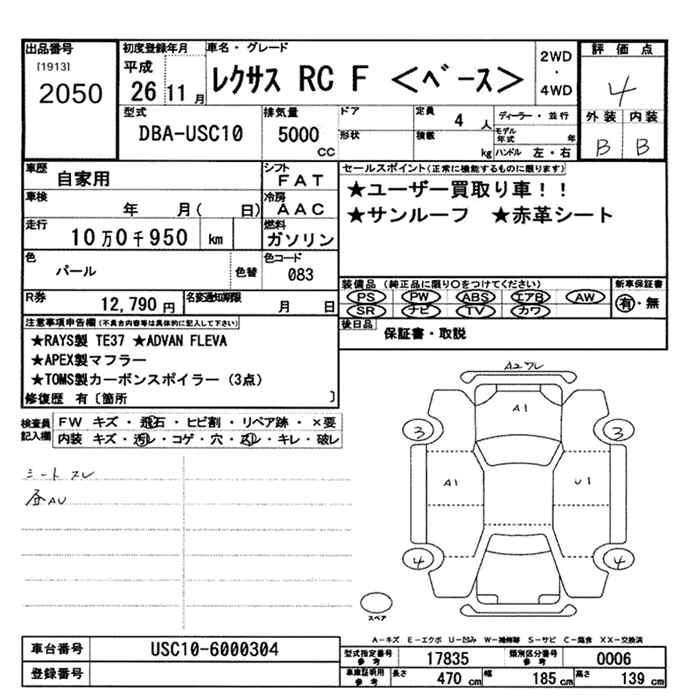 出品番号
[1913]
2050
初度登録年月
平成
26 11 月
車名・グレード
レクサス RC F <ベース>
2WD
・
4WD
評価点
4
外装 内装
B B
型式
DBA-USC10
排気量
5000
CC
ドア
形状
定員
4 人
積載
kg
ディーラー・並行
モデル年式 年
ハンドル 左・右
車歴
自家用
シフト
FAT
車検
年 月( 日)
冷房
AAC
走行
10万0千950 km
燃料
ガソリン
色
パール
色替
色コード
083
R券
12,790 円
名変通知期限
月 日
セールスポイント(正常に機能するものに限ります)
★ユーザー買取り車!!
★サンルーフ ★赤革シート
装備品 (純正品に限り○をつけてください)
PS PW ABS エアB AW
SR ナビ TV カワ
新車保証書
有・無
後日品
保証書・取説
注意事項申告欄(不具合内容等は具体的に記入して下さい)
★RAYS製 TE37 ★ADVAN FLEVA
★APEX製マフラー
★TOMS製カーボンスポイラー (3点)
修復歴 有〔箇所 〕
検査員
記入欄
FW キズ・飛石・ヒビ割・リペア跡・×要
内装 キズ・汚レ・コゲ・穴・スレ・キレ・破レ
シートスレ
A2フレ
A1
3 3
A1
U1
4 4
スペア
A-キズ E-エクボ U-凹み W-補修跡 S-サビ C-腐食 XX-交換済
車台番号
USC10-6000304
登録番号
型式指定番号
参考
17835
類別区分番号
参考
0006
車庫証明用
参考
長さ 470 cm 幅 185 cm 高さ 139 cm